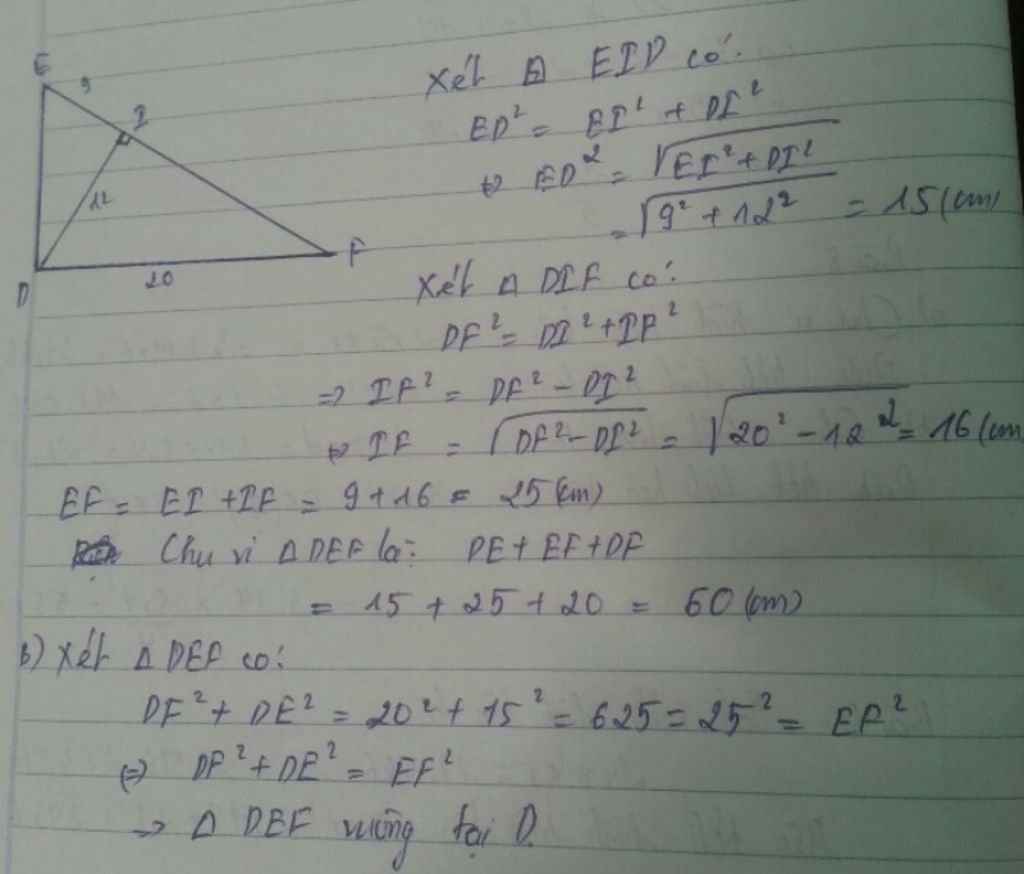 E
9
I
12
D
20
F
Xét Δ EID có:
ED² = EI² + DI²
⇔ ED² = √EI² + DI²
= √9² + 12² = 15 (cm)
Xét Δ DIF có:
DF² = DI² + IF²
⇒ IF² = DF² - DI²
⇔ IF = √DF² - DI² = √20² - 12² = 16 (cm
EF = EI + IF = 9 + 16 = 25 (cm)
Chu vi Δ DEF là: DE + EF + DF
= 15 + 25 + 20 = 60 (cm)
b) Xét Δ DEF có:
DF² + DE² = 20² + 15² = 625 = 25² = EF²
⇔ DF² + DE² = EF²
→ Δ DEF vuông tại D.